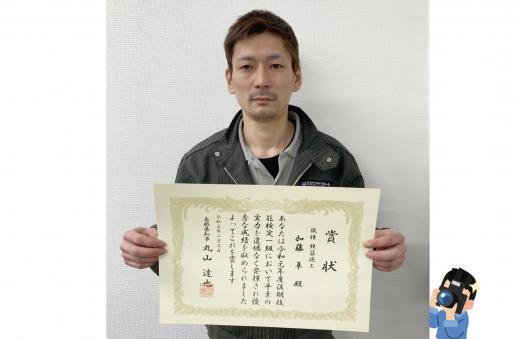 賞状
職種 鉄筋施工
加藤 卓 殿
あなたは令和元年度後期技
能検定一級において卒業の
実力を遺憾なく発揮され優
秀な成績を収められました
よってこれを賞します
島根県知事 丸山 達也